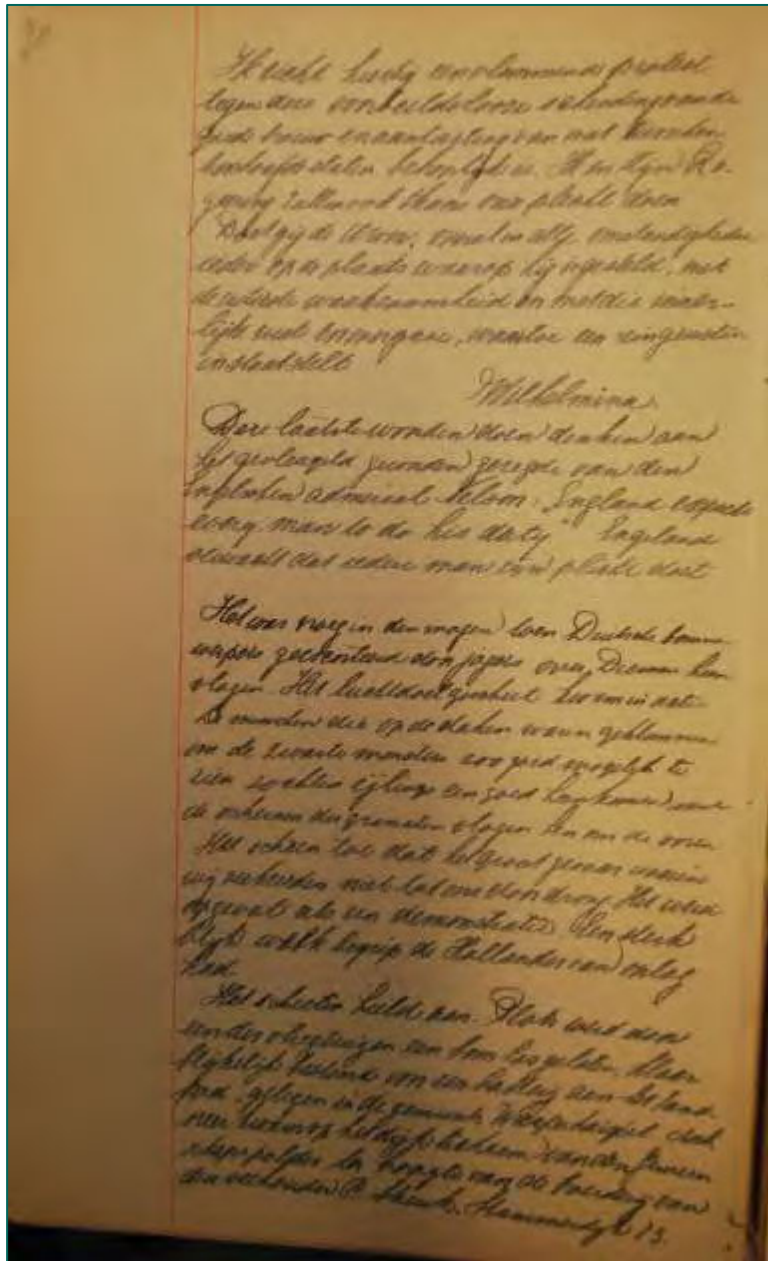 Ik richt hierbij een vlammend protest
tegen deze voorbeeldelooze schending van de
goede trouw en aantasting van wat tusschen
beschaafde staten behoorlijk is. Ik en Mijn Re-
geering zullen ook thans onze plicht doen
Doet gij de Uwe, overal en in alle omstandigheden
ieder op de plaats waarop hij is gesteld, met
de uiterste waakzaamheid en met die inner-
lijke rust en overgave, waartoe een rein geweten
in staat stelt
Wilhelmina.
Deze laatste woorden doen denken aan
het gevleugeld geworden gezegde van den
Engelschen admiraal Nelson: "England expects
every man to do his duty" Engeland
verwacht dat iedere man zijn plicht doet
Het was vroeg in den morgen toen Duitsche bomm-
werpers door jagers over Diemen heen
vlogen. Het luchtdoelgeschut
De menschen die op de daken waren geklommen
om de zwarte monsters zoo goed mogelijk te
zien zochten ijlings een goed heenkomen, want
de scherven der granaten vlogen hen om de ooren
Het scheen toe dat het groot gevaar waarin
wij verkeerden niet tot ons doordrong. Het werd
opgevat als een demonstratie. Een sterk
blijk welk begrip de Hollander van oorlog
had.
Het schieten hield aan. Plots werd door
een der vliegtuigen een bom losgelaten,
bestemd voor een batterij aan het land
gelegen in de gemeente Weesperkarspel
van den Gemeen-
schapspolder ter hoogte van de boerderij van
den veehouder P. Stammerdijk 13.